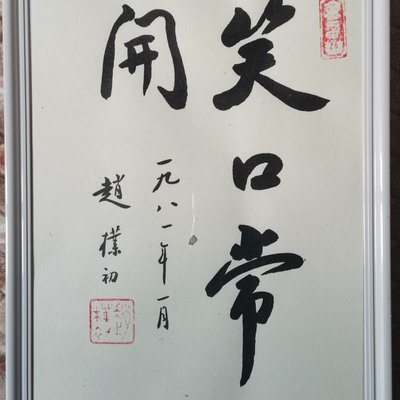 笑口常
開
一九八一年一月
趙樸初